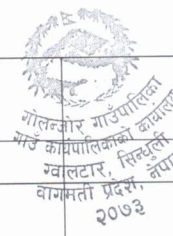 गोलन्जोर गाउँपालिका
गाउँ कार्यपालिकाको कार्यालय
ग्वालटार, सिन्धुली
वागमती प्रदेश, नेपाल
२०७३